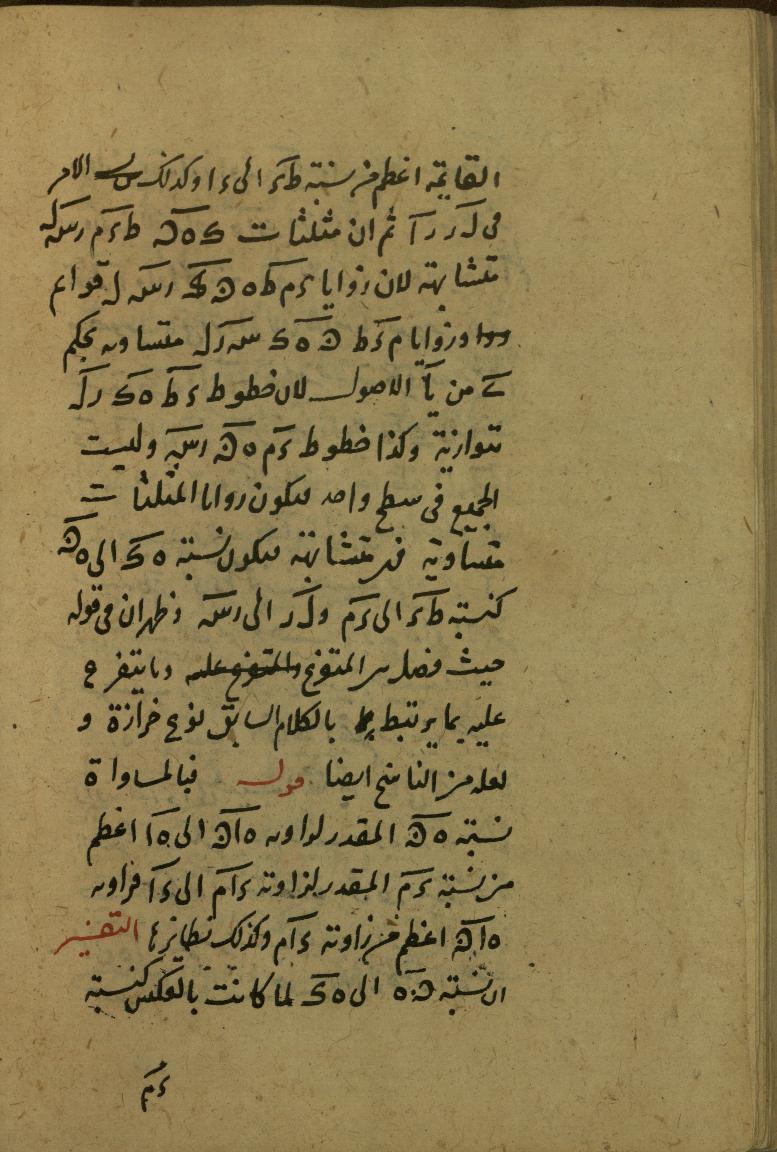 القايمة اعظم من نسبة طء الى ءا وكذلك الامر
فى لر را ثم ان مثلثات ك ه ط ء م رسه
متشابهة لان زوايا ءم ط ه ك رسه ل قوايم
وزوايا م ء ط ه ك سه ر ل متساويه بحكم
ى من يا الاصول لان خطوط ء ط ه ك ر ل
متوازية وكذا خطوط ءم ه رسه وليست
الجميع فى سطح واحد فيكون زوايا المثلثات
متساوية فهى متشابهة فيكون نسبة ه ك الى ه
كنسبة طء الى ءم ولر الى رسه وظهر ان فى قوله
حيث فصل بين المتفرع والمتفرع عليه وما يتفرع
عليه بما يرتبط بالكلام السابق نوع خرازة و
لعله من الناسخ ايضا قوله فبالمساواة
نسبة ه المقدر لزاوية ه ا الى ه ا اعظم
من نسبة ءم المقدر لزاوية ءام الى ءا فزاوية
ه ا اعظم من زاوية ءام وكذلك نظايرها التفسير
ان نسبة ه الى ه ك لما كانت بالعكس كنسبة
ءم